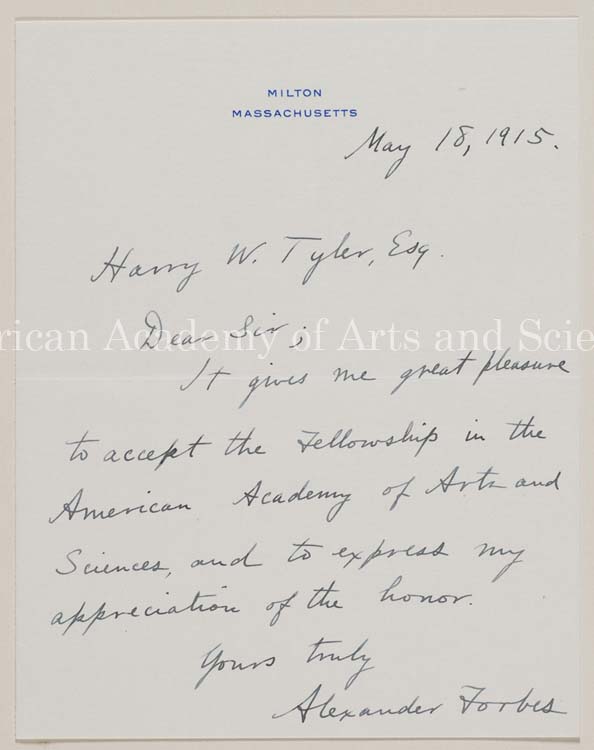 MILTON
MASSACHUSETTS
May 18, 1915.
Harry W. Tyler, Esq.
Dear Sir;
It gives me great pleasure
to accept the Fellowship in the
American Academy of Arts and
Sciences, and to express my
appreciation of the honor.
Yours truly
Alexander Forbes
rican Academy of Arts and Scie